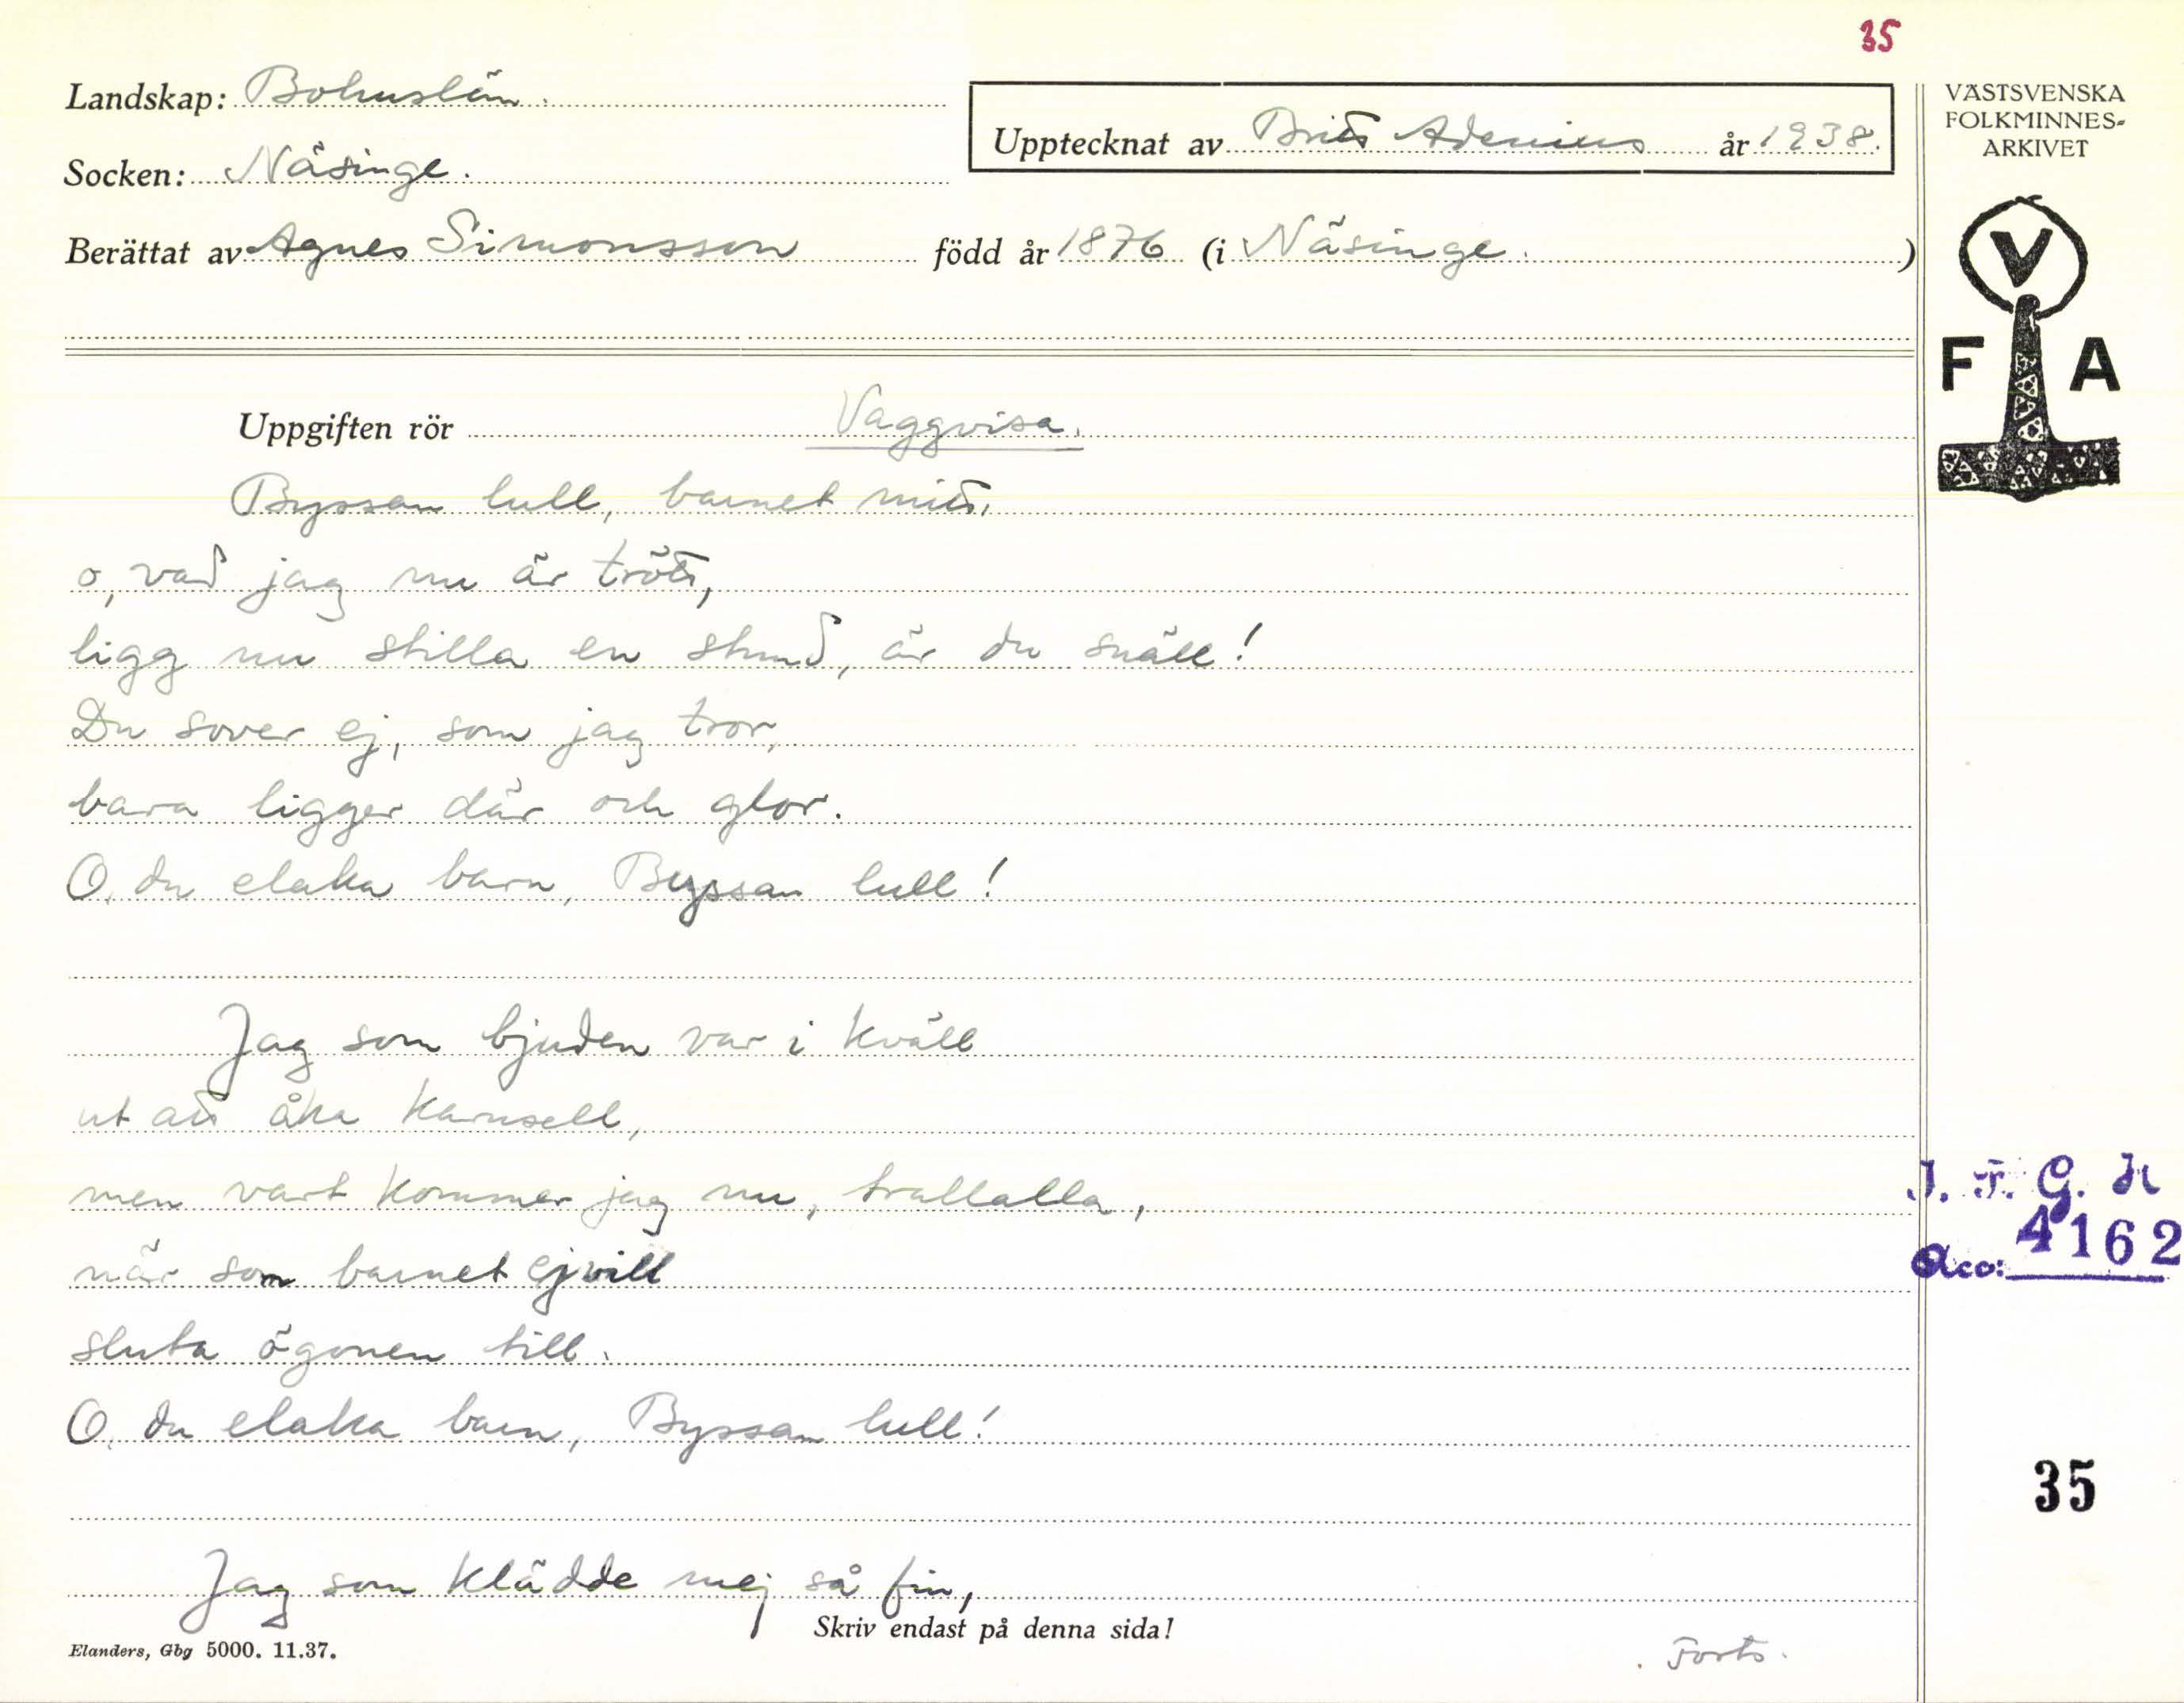 35
Landskap: Bohuslän.
Socken: Näsinge.
Upptecknat av Britt Adenius år 1938.
Berättat av Agnes Simonsson född år 1876 (i Näsinge.)
VÄSTSVENSKA
FOLKMINNES-
ARKIVET
V
F A
Uppgiften rör Vaggvisa.
Byssan lull, barnet mitt,
o, vad jag nu är trött,
ligg nu stilla en stund, är du snäll!
Du sover ej, som jag tror,
bara ligger där och glor.
O, du elaka barn, Byssan lull!
Jag som bjuden var i kväll
ut att åka karusell,
men vart kommer jag nu, trallalla,
när som barnet ej vill
sluta ögonen till.
O, du elaka barn, Byssan lull!
Jag som klädde mej så fin,
I. F. G. H
Acc: 4162
35
Skriv endast på denna sida!
Elanders, Gbg 5000. 11.37.
Forts.